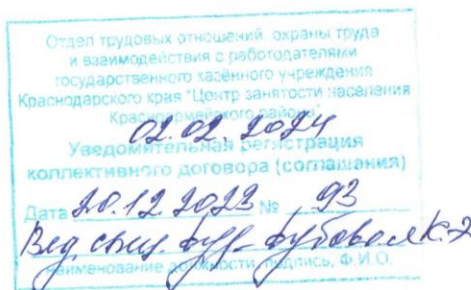 Отдел трудовых отношений, охраны труда
и взаимодействия с работодателями
государственного казённого учреждения
Краснодарского края "Центр занятости населения
Красноармейского района"
02.02.2024
Уведомительная регистрация
коллективного договора (соглашения)
Дата 20.12.2023 № 93
Вед. спец.
наименование должности, подпись, Ф.И.О.